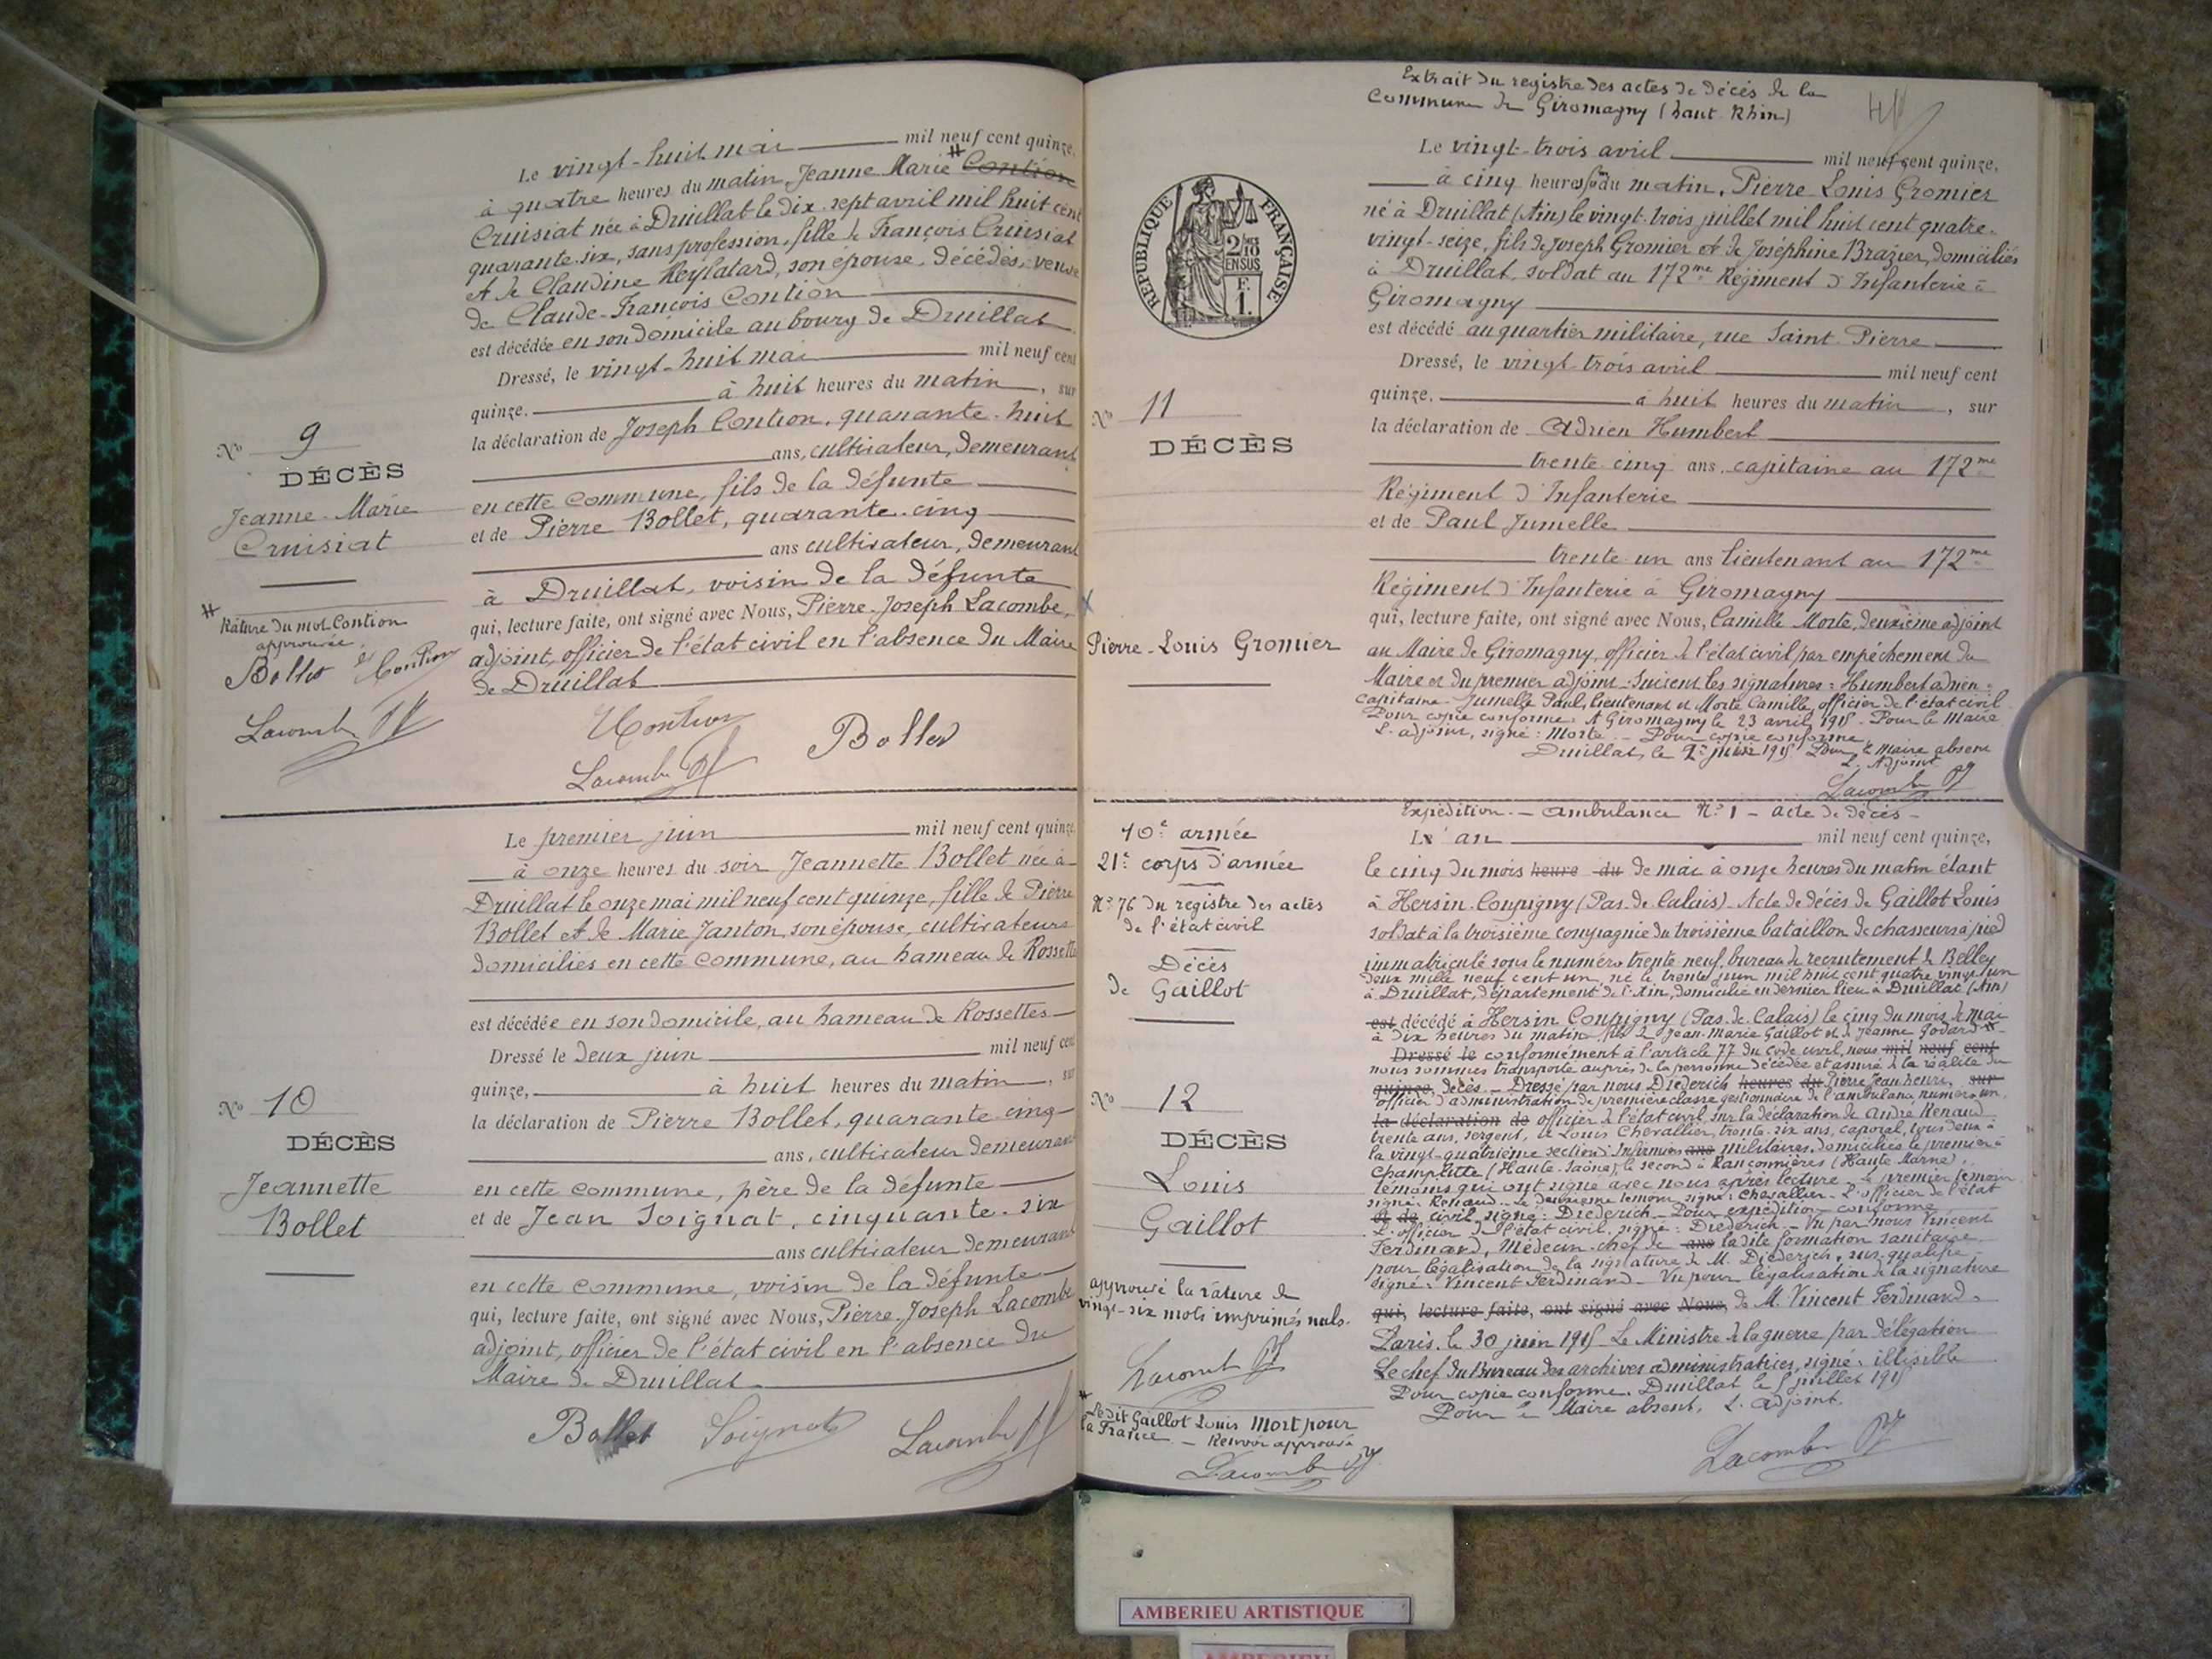 Le vingt-huit mai mil neuf cent quinze,
à quatre heures du matin, Jeanne Marie # Contion
Cruisiat née à Druillat le dix-sept avril mil huit cent
quarante-six, sans profession, fille de François Cruisiat
et de Claudine Reylatard, son épouse, décédés, veuve
de Claude-François Contion
est décédée en son domicile au bourg de Druillat
Dressé, le vingt-huit mai mil neuf cent
quinze, à huit heures du matin, sur
la déclaration de Joseph Contion, quarante-huit
ans, cultivateur, demeurant
en cette commune, fils de la défunte
et de Pierre Bollet, quarante-cinq
ans cultivateur, demeurant
à Druillat, voisin de la défunte
qui, lecture faite, ont signé avec Nous, Pierre-Joseph Lacombe,
adjoint, officier de l'état civil en l'absence du Maire
de Druillat
Contion
Bollet
Lacombe PJ
No 9
DÉCÈS
Jeanne-Marie
Cruisiat
# Râture du mot Contion
approuvée.
Bollet Contion
Lacombe PJ
Le premier juin mil neuf cent quinze
à onze heures du soir Jeannette Bollet née à
Druillat le onze mai mil neuf cent quinze, fille de Pierre
Bollet et de Marie Janton, son épouse, cultivateurs
domiciliés en cette commune, au hameau de Rossettes
est décédée en son domicile, au hameau de Rossettes
Dressé le deux juin mil neuf cent
quinze, à huit heures du matin, sur
la déclaration de Pierre Bollet, quarante-cinq
ans, cultivateur demeurant
en cette commune, père de la défunte
et de Jean Soignat, cinquante-six
ans cultivateur demeurant
en cette commune, voisin de la défunte
qui, lecture faite, ont signé avec Nous, Pierre-Joseph Lacombe
adjoint, officier de l'état civil en l'absence du
Maire de Druillat
Bollet Soignat Lacombe PJ
No 10
DÉCÈS
Jeannette
Bollet
Extrait du registre des actes de décès de la
Commune de Giromagny (haut Rhin)
RÉPUBLIQUE FRANÇAISE
2/10 EN SUS
F. 1.
Le vingt-trois avril mil neuf cent quinze,
à cinq heures du matin, Pierre Louis Gromier
né à Druillat (Ain) le vingt-trois juillet mil huit cent quatre-
vingt-seize, fils de Joseph Gromier et de Joséphine Brazier, domiciliés
à Druillat, soldat au 172me Régiment d'Infanterie à
Giromagny
est décédé au quartier militaire, rue Saint-Pierre
Dressé, le vingt-trois avril mil neuf cent
quinze, à huit heures du matin, sur
la déclaration de Adrien Humbert
trente-cinq ans, capitaine au 172me
Régiment d'Infanterie
et de Paul Jumelle
trente-un ans lieutenant au 172me
Régiment d'Infanterie à Giromagny
qui, lecture faite, ont signé avec Nous, Camille Morte, deuxième adjoint
au Maire de Giromagny, officier de l'état civil par empêchement du
Maire et du premier adjoint. Suivent les signatures: Humbert adrien
capitaine Jumelle Paul, lieutenant et Morte Camille, officier de l'état civil
Pour copie conforme. A Giromagny le 23 avril 1915. Pour le Maire
L. adjoint, signé: Morte. - Pour copie conforme.
Druillat, le 2 juin 1915 Pour le Maire absent
L. Adjoint
Lacombe PJ
No 11
DÉCÈS
Pierre-Louis Gromier
Expédition. - Ambulance No 1 - Acte de décès -
L' an mil neuf cent quinze,
le cinq du mois heure du de mai à onze heures du matin étant
à Hersin-Coupigny (Pas-de-Calais). Acte de décès de Gaillot Louis
soldat à la troisième compagnie du troisième bataillon de chasseurs à pied
immatriculé sous le numéro trente neuf, bureau de recrutement de Belley
deux mille neuf cent un, né le trente juin mil huit cent quatre vingt un
à Druillat, département de l'Ain, domicilié en dernier lieu à Druillat (Ain)
est décédé à Hersin Coupigny (Pas-de-Calais) le cinq du mois de mai
à dix heures du matin, fils de Jean-Marie Gaillot et de Jeanne Godard #
Dressé le conformément à l'article 77 du code civil, nous mil neuf cent
nous sommes transporté auprès de la personne décédée et assuré de la réalité du
quinze, décès. - Dressé par nous Diederich heures du Pierre Jean henri, sur
officier d'administration de première classe gestionnaire de l'ambulance numéro un,
la déclaration de officier de l'état civil, sur la déclaration de André Renaud
trente ans, sergent, et Louis Chevallier, trente-six ans, caporal, tous deux à
la vingt-quatrième section d'Infirmiers ans militaires, domiciliés le premier à
Champlitte (Haute-Saône), le second à Rançonnières (Haute Marne),
témoins qui ont signé avec nous après lecture. Le premier témoin
signé: Renaud. Le deuxième témoin signé: Chevallier. L'officier de l'état
et de civil, signé: Diederich. Pour expédition conforme
L'officier de l'état civil, signé: Diederich. - Vu par nous Vincent
Ferdinand, Médecin-chef de ans ladite formation sanitaire
pour légalisation de la signature de M. Diederich, sus-qualifié
signé: Vincent Ferdinand. Vu pour légalisation de la signature
qui, lecture faite, ont signé avec Nous, de M. Vincent Ferdinand.
Paris, le 30 juin 1915 Le Ministre de la guerre par délégation
Le chef du Bureau des archives administratives, signé: illisible
Pour copie conforme. Druillat le 5 juillet 1915
Pour le Maire absent, L. adjoint.
Lacombe PJ
10e armée
21e corps d'armée
No 76 du registre des actes
de l'état civil
Décès
de Gaillot
No 12
DÉCÈS
Louis
Gaillot
approuvé la râture de
vingt-six mots imprimés nuls.
Lacombe PJ
# Le dit Gaillot Louis Mort pour
la France. - Renvoi approuvé
Lacombe PJ
AMBERIEU ARTISTIQUE
AMBERIEU